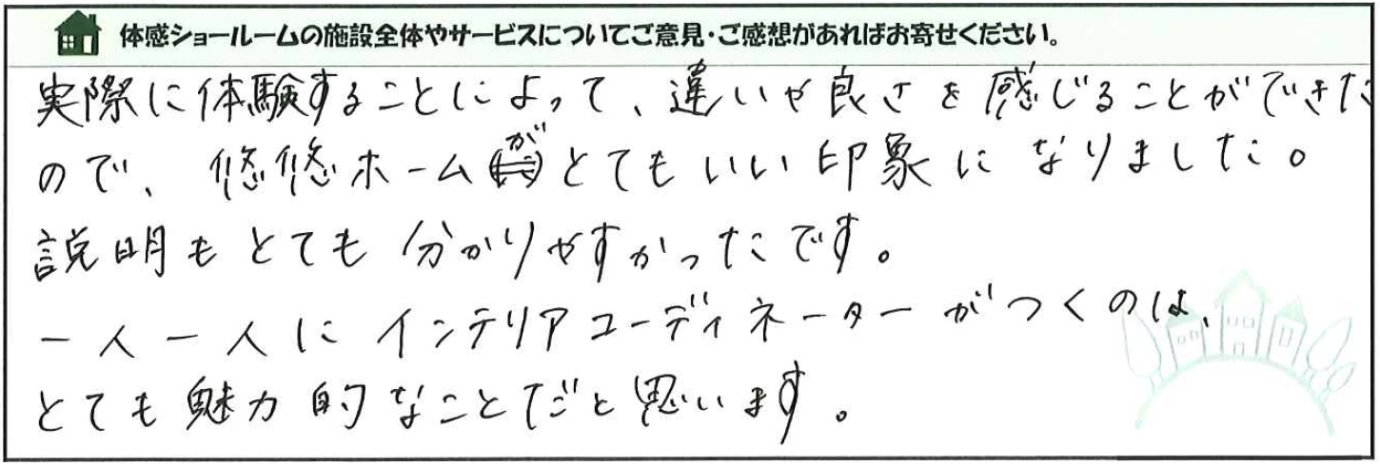 体感ショールームの施設全体やサービスについてご意見・ご感想があればお寄せください。
実際に体験することによって、違いや良さを感じることができた
ので、悠悠ホームがとてもいい印象になりました。
説明もとても分かりやすかったです。
一人一人にインテリアコーディネーターがつくのは、
とても魅力的なことだと思います。